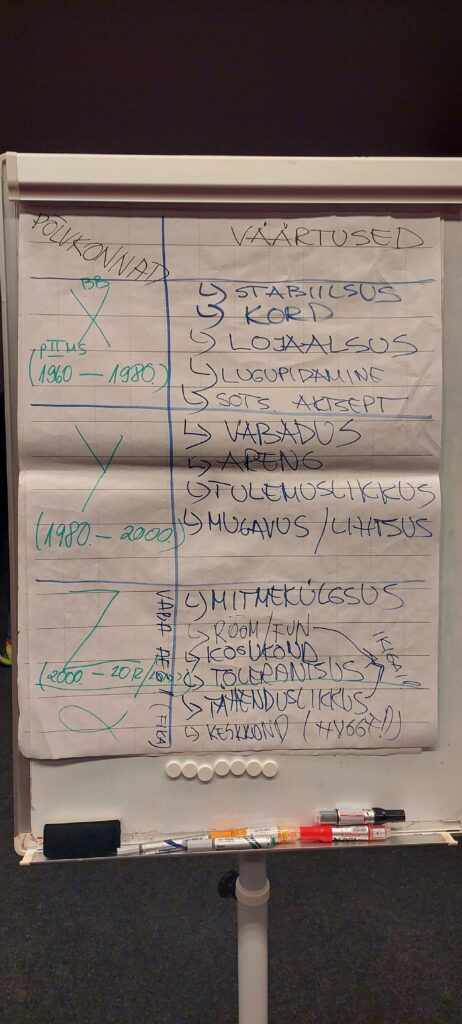 PÕLVKONNAD
VÄÄRTUSED
BB
X
p II MS
(1960 – 1980)
↳ STABIILSUS
↳ KORD
↳ LOJAALSUS
↳ LUGUPIDAMINE
↳ SOTS. AKTSEPT
Y
(1980 – 2000)
↳ VABADUS
↳ ARENG
↳ TULEMUSLIKKUS
↳ MUGAVUS / LIHTSUS
Z
(2000 –
α
VABA AEG (FIKA)
↳ MITMEKÜLGSUS
↳ ROOM/FUN
↳ KOGUKOND
↳ TOLERANTSUS
↳ TÄHENDUSLIKKUS
↳ KESKKOND (HYGGE!)
IKIGAI